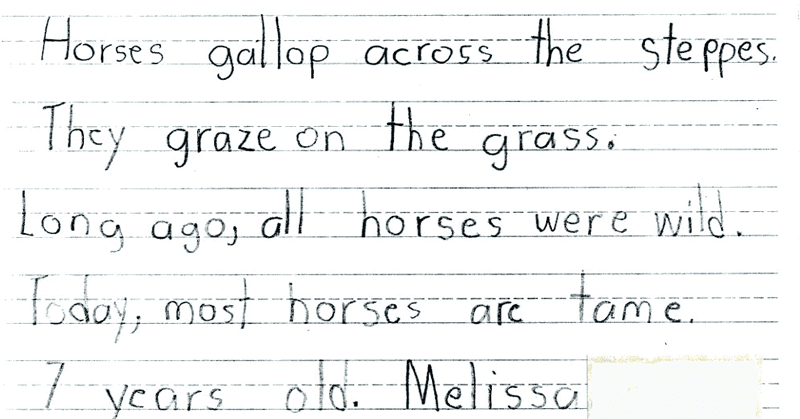 Horses gallop across the steppes.
They graze on the grass.
Long ago, all horses were wild.
Today, most horses are tame.
7 years old. Melissa